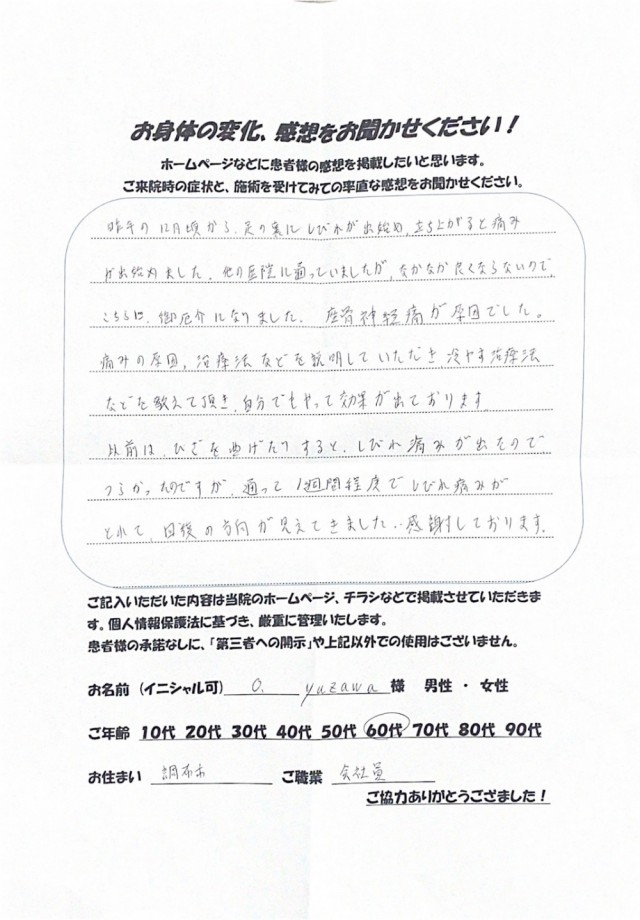 お身体の変化、感想をお聞かせください！
ホームページなどに患者様の感想を掲載したいと思います。
ご来院時の症状と、施術を受けてみての率直な感想をお聞かせください。
昨年の12月頃から、足の裏にしびれが出始め、立ち上がると痛み
が出始めました。他の医院に通っていましたが、なかなか良くならないので、
こちらに、御厄介になりました。座骨神経痛が原因でした。
痛みの原因、治療法などを説明していただき、冷やす治療法
などを教えて頂き、自分でもやって効果が出ております。
以前は、ひざを曲げたりすると、しびれ痛みが出たので
つらかったのですが、通って1週間程度でしびれ痛みが
とれて、回復の方向が見えてきました。感謝しております。
ご記入いただいた内容は当院のホームページ、チラシなどで掲載させていただきま
す。個人情報保護法に基づき、厳重に管理いたします。
患者様の承諾なしに、「第三者への開示」や上記以外での使用はございません。
お名前（イニシャル可） O. yuzawa 様 男性 ・ 女性
ご年齢 10代 20代 30代 40代 50代 60代 70代 80代 90代
お住まい 調布市 ご職業 会社員
ご協力ありがとうござました！